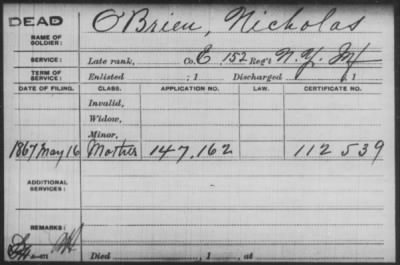 DEAD
NAME OF SOLDIER: O'Brien, Nicholas
SERVICE: Late rank, Co. E, 152 Reg't N.Y. Inf
TERM OF SERVICE: Enlisted , 1 Discharged , 1
DATE OF FILING. CLASS. APPLICATION NO. LAW. CERTIFICATE NO.
Invalid,
Widow,
Minor,
1867 May 16 Mother 147,162 112 539
ADDITIONAL SERVICES:
REMARKS:
Died , 1 , at